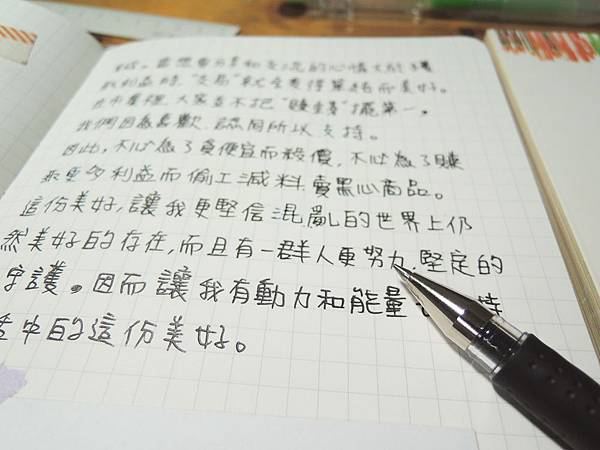 當想要分享和交流的心情大於獲
取利益時,"交易"就會變得單純而美好。
在市集裡,大家並不把"賺錢"擺第一,
我們因為喜歡、認同所以支持。
因此,不必為了貪便宜而殺價,不必為了賺
取更多利益而偷工減料、賣黑心商品。
這份美好,讓我更堅信混亂的世界上仍
然美好的存在,而且有一群人更努力、堅定的
守護。因而讓我有動力和能量
中的這份美好。